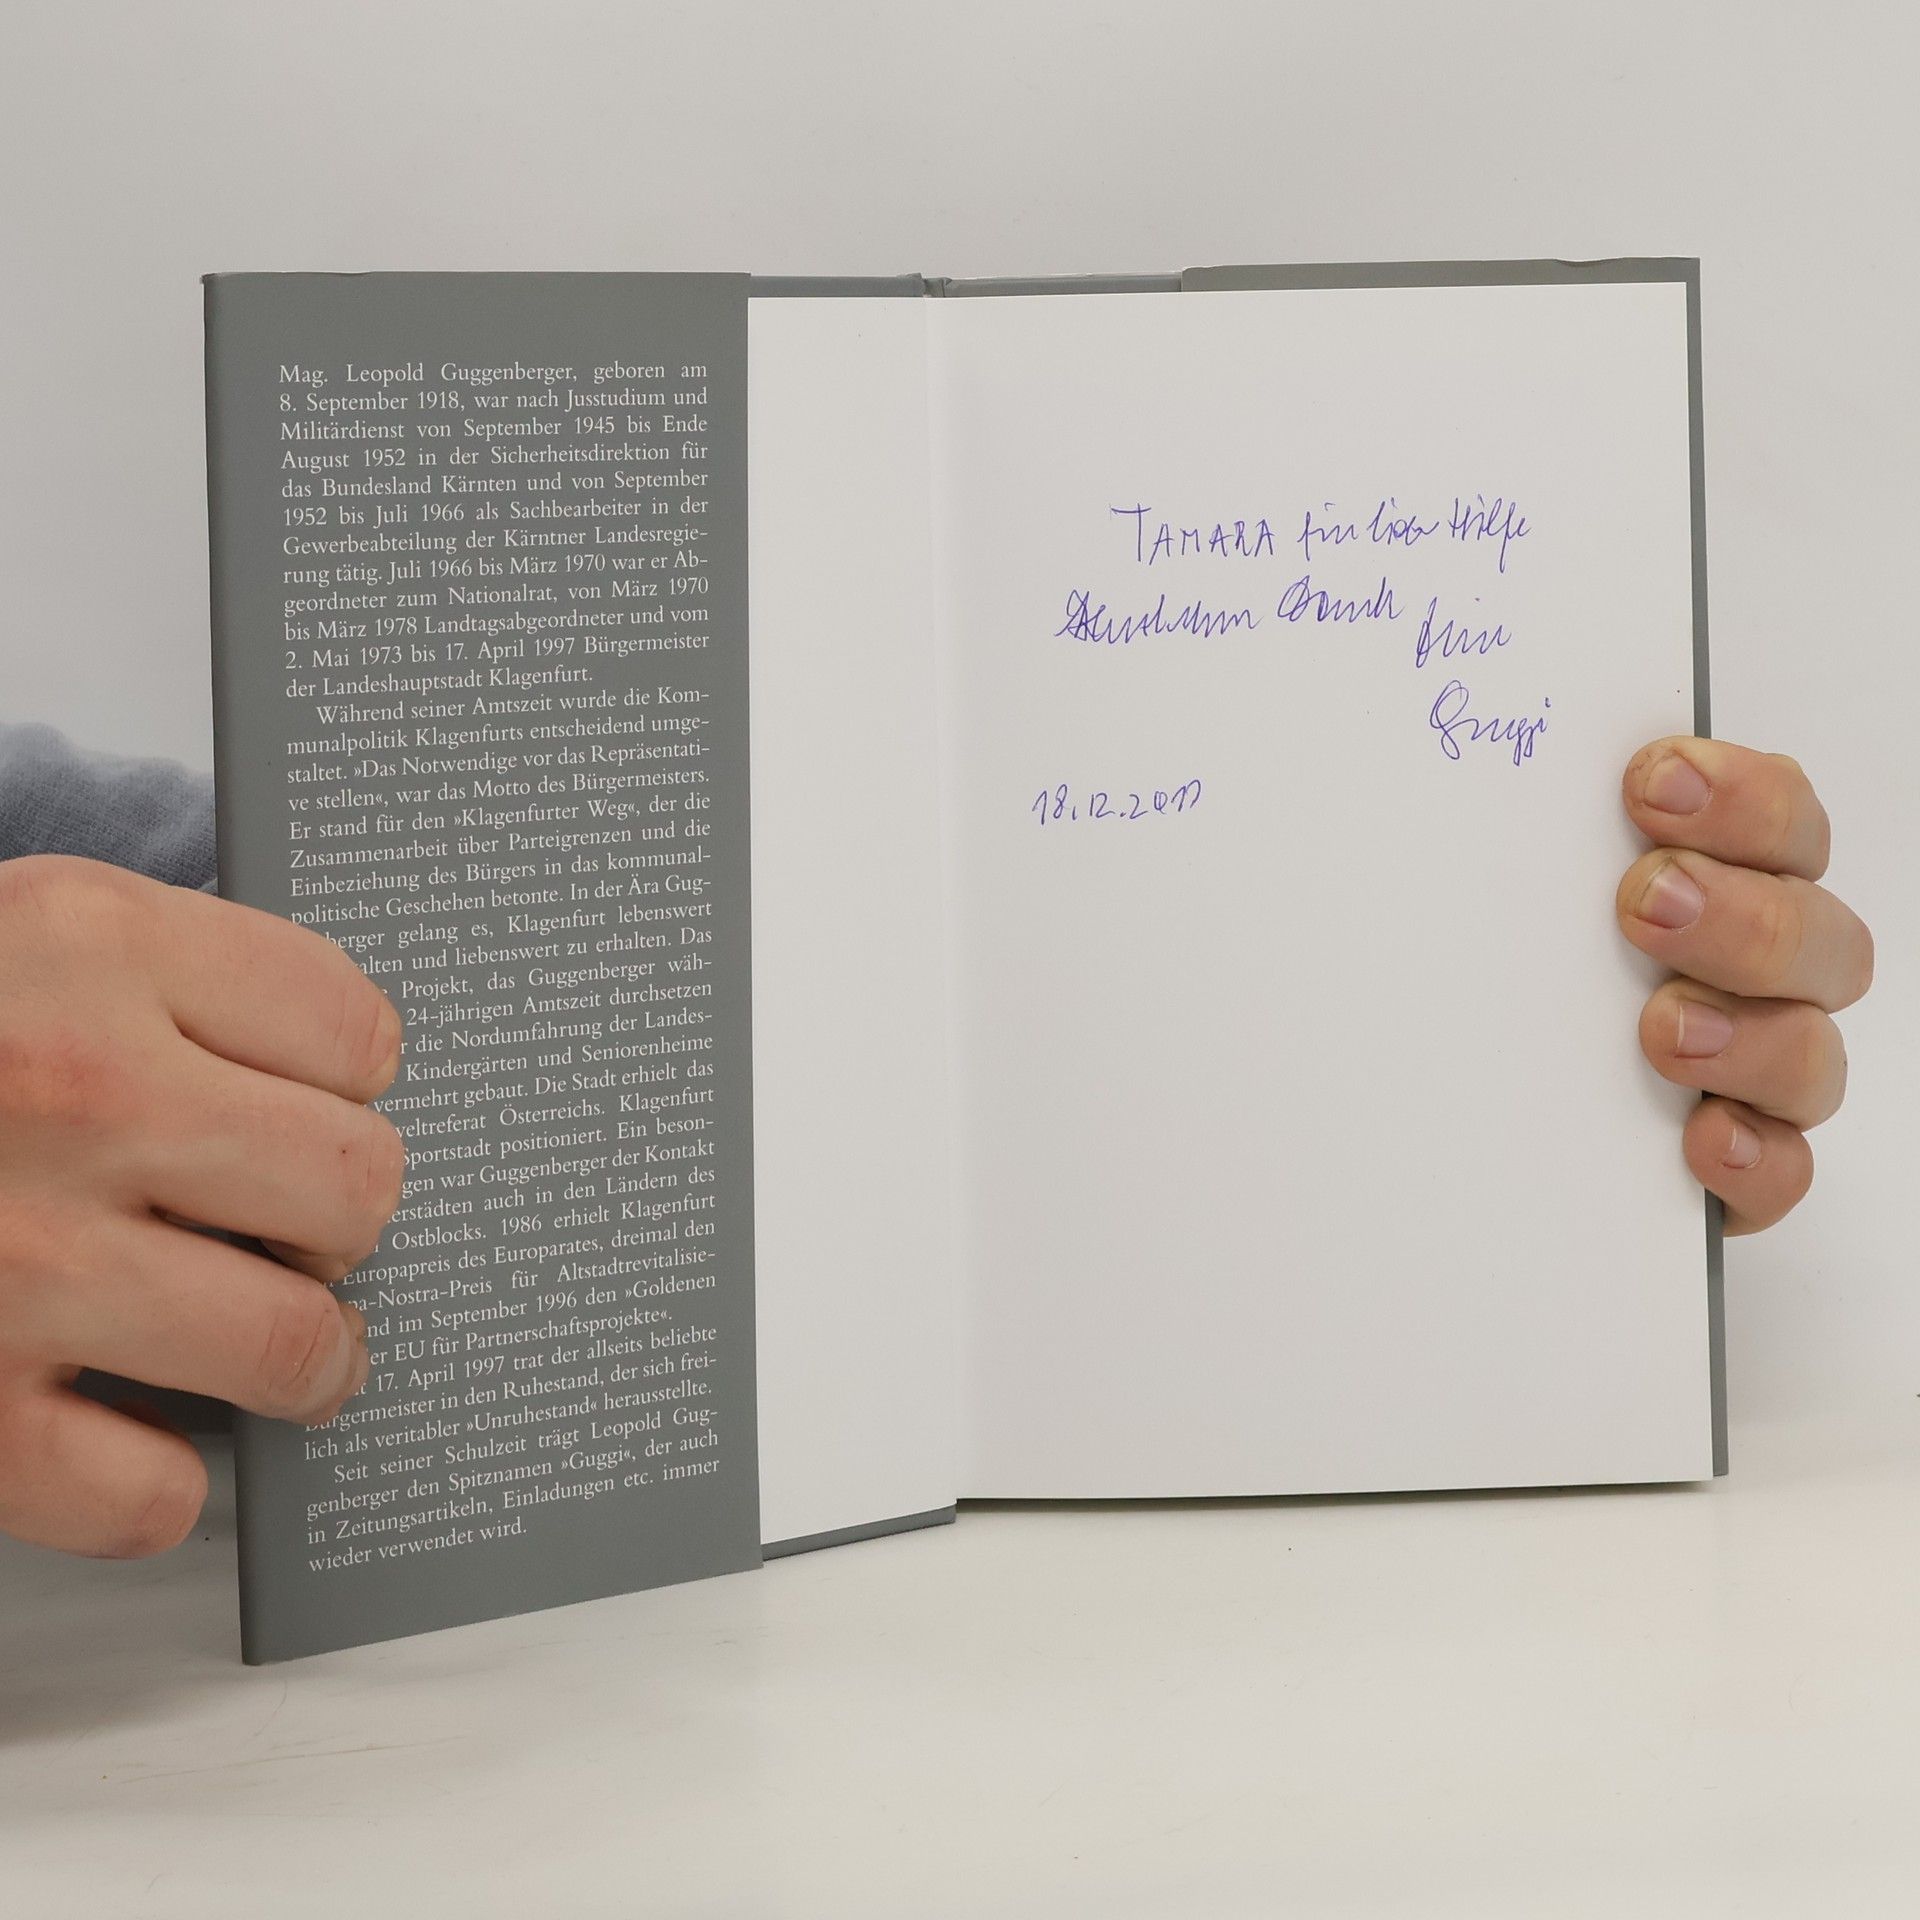 Mag. Leopold Guggenberger, geboren am
8. September 1918, war nach Jusstudium und
Militärdienst von September 1945 bis Ende
August 1952 in der Sicherheitsdirektion für
das Bundesland Kärnten und von September
1952 bis Juli 1966 als Sachbearbeiter in der
Gewerbeabteilung der Kärntner Landesregie-
rung tätig. Juli 1966 bis März 1970 war er Ab-
geordneter zum Nationalrat, von März 1970
bis März 1978 Landtagsabgeordneter und vom
2. Mai 1973 bis 17. April 1997 Bürgermeister
der Landeshauptstadt Klagenfurt.
Während seiner Amtszeit wurde die Kom-
munalpolitik Klagenfurts entscheidend umge-
staltet. »Das Notwendige vor das Repräsentati-
ve stellen«, war das Motto des Bürgermeisters.
Er stand für den »Klagenfurter Weg«, der die
Zusammenarbeit über Parteigrenzen und die
Einbeziehung des Bürgers in das kommunal-
politische Geschehen betonte. In der Ära Gug-
berger gelang es, Klagenfurt lebenswert
alten und liebenswert zu erhalten. Das
Projekt, das Guggenberger wäh-
24-jährigen Amtszeit durchsetzen
r die Nordumfahrung der Landes-
Kindergärten und Seniorenheime
vermehrt gebaut. Die Stadt erhielt das
weltreferat Österreichs. Klagenfurt
Sportstadt positioniert. Ein beson-
gen war Guggenberger der Kontakt
erstädten auch in den Ländern des
Ostblocks. 1986 erhielt Klagenfurt
Europapreis des Europarates, dreimal den
pa-Nostra-Preis für Altstadtrevitalisie-
nd im September 1996 den »Goldenen
er EU für Partnerschaftsprojekte«.
17. April 1997 trat der allseits beliebte
Bürgermeister in den Ruhestand, der sich frei-
lich als veritabler »Unruhestand« herausstellte.
Seit seiner Schulzeit trägt Leopold Gug-
genberger den Spitznamen »Guggi«, der auch
in Zeitungsartikeln, Einladungen etc. immer
wieder verwendet wird.
TAMARA für liebe Hilfe
Dank
Guggi
18.12.2017